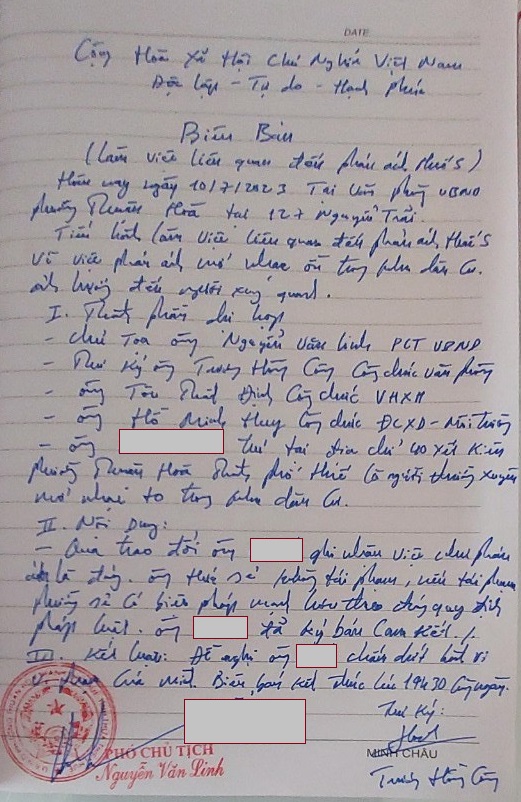 DATE
Cộng Hoà Xã Hội Chủ Nghĩa Việt Nam
Độc lập - Tự do - Hạnh phúc
Biên Bản
(Làm việc liên quan đến phản ánh Huế S)
Hôm nay ngày 10/7/2023 Tại Văn phòng UBND
phường Thuận Hoà tại 127 Nguyễn Trãi.
Tiến hành làm việc liên quan đến phản ánh Huế S
Về việc phản ánh mở nhạc ồn trong khu dân cư.
ảnh hưởng đến người xung quanh.
I. Thành phần dự họp
- Chủ Toạ ông Nguyễn Văn Linh PCT UBND
- Thư ký ông Trương Hồng Công Công chức Văn phòng
- ông Tôn Thất Định Công chức VHXH
- ông Hồ Minh Huy Công chức ĐCXD - Môi trường
- ông trú tại địa chỉ Kiệm
phường Thuận Hoà Thành phố Huế Là người thường xuyên
mở nhạc to trong khu dân cư.
II. Nội Dung:
- Qua trao đổi ông ghi nhận việc như phản
ánh là đúng. ông sẽ không tái phạm, nếu tái phạm
phường sẽ có biện pháp mạnh theo đúng quy định
pháp luật. ông đã ký bản Cam Kết./.
III. Kết luận: Đề nghị ông chấm dứt hành vi
vi phạm của mình. Biên bản kết thúc lúc 14h30 Cùng ngày.
Thư Ký:
PHÓ CHỦ TỊCH
MINH CHÂU
Nguyễn Văn Linh
Trương Hồng Công